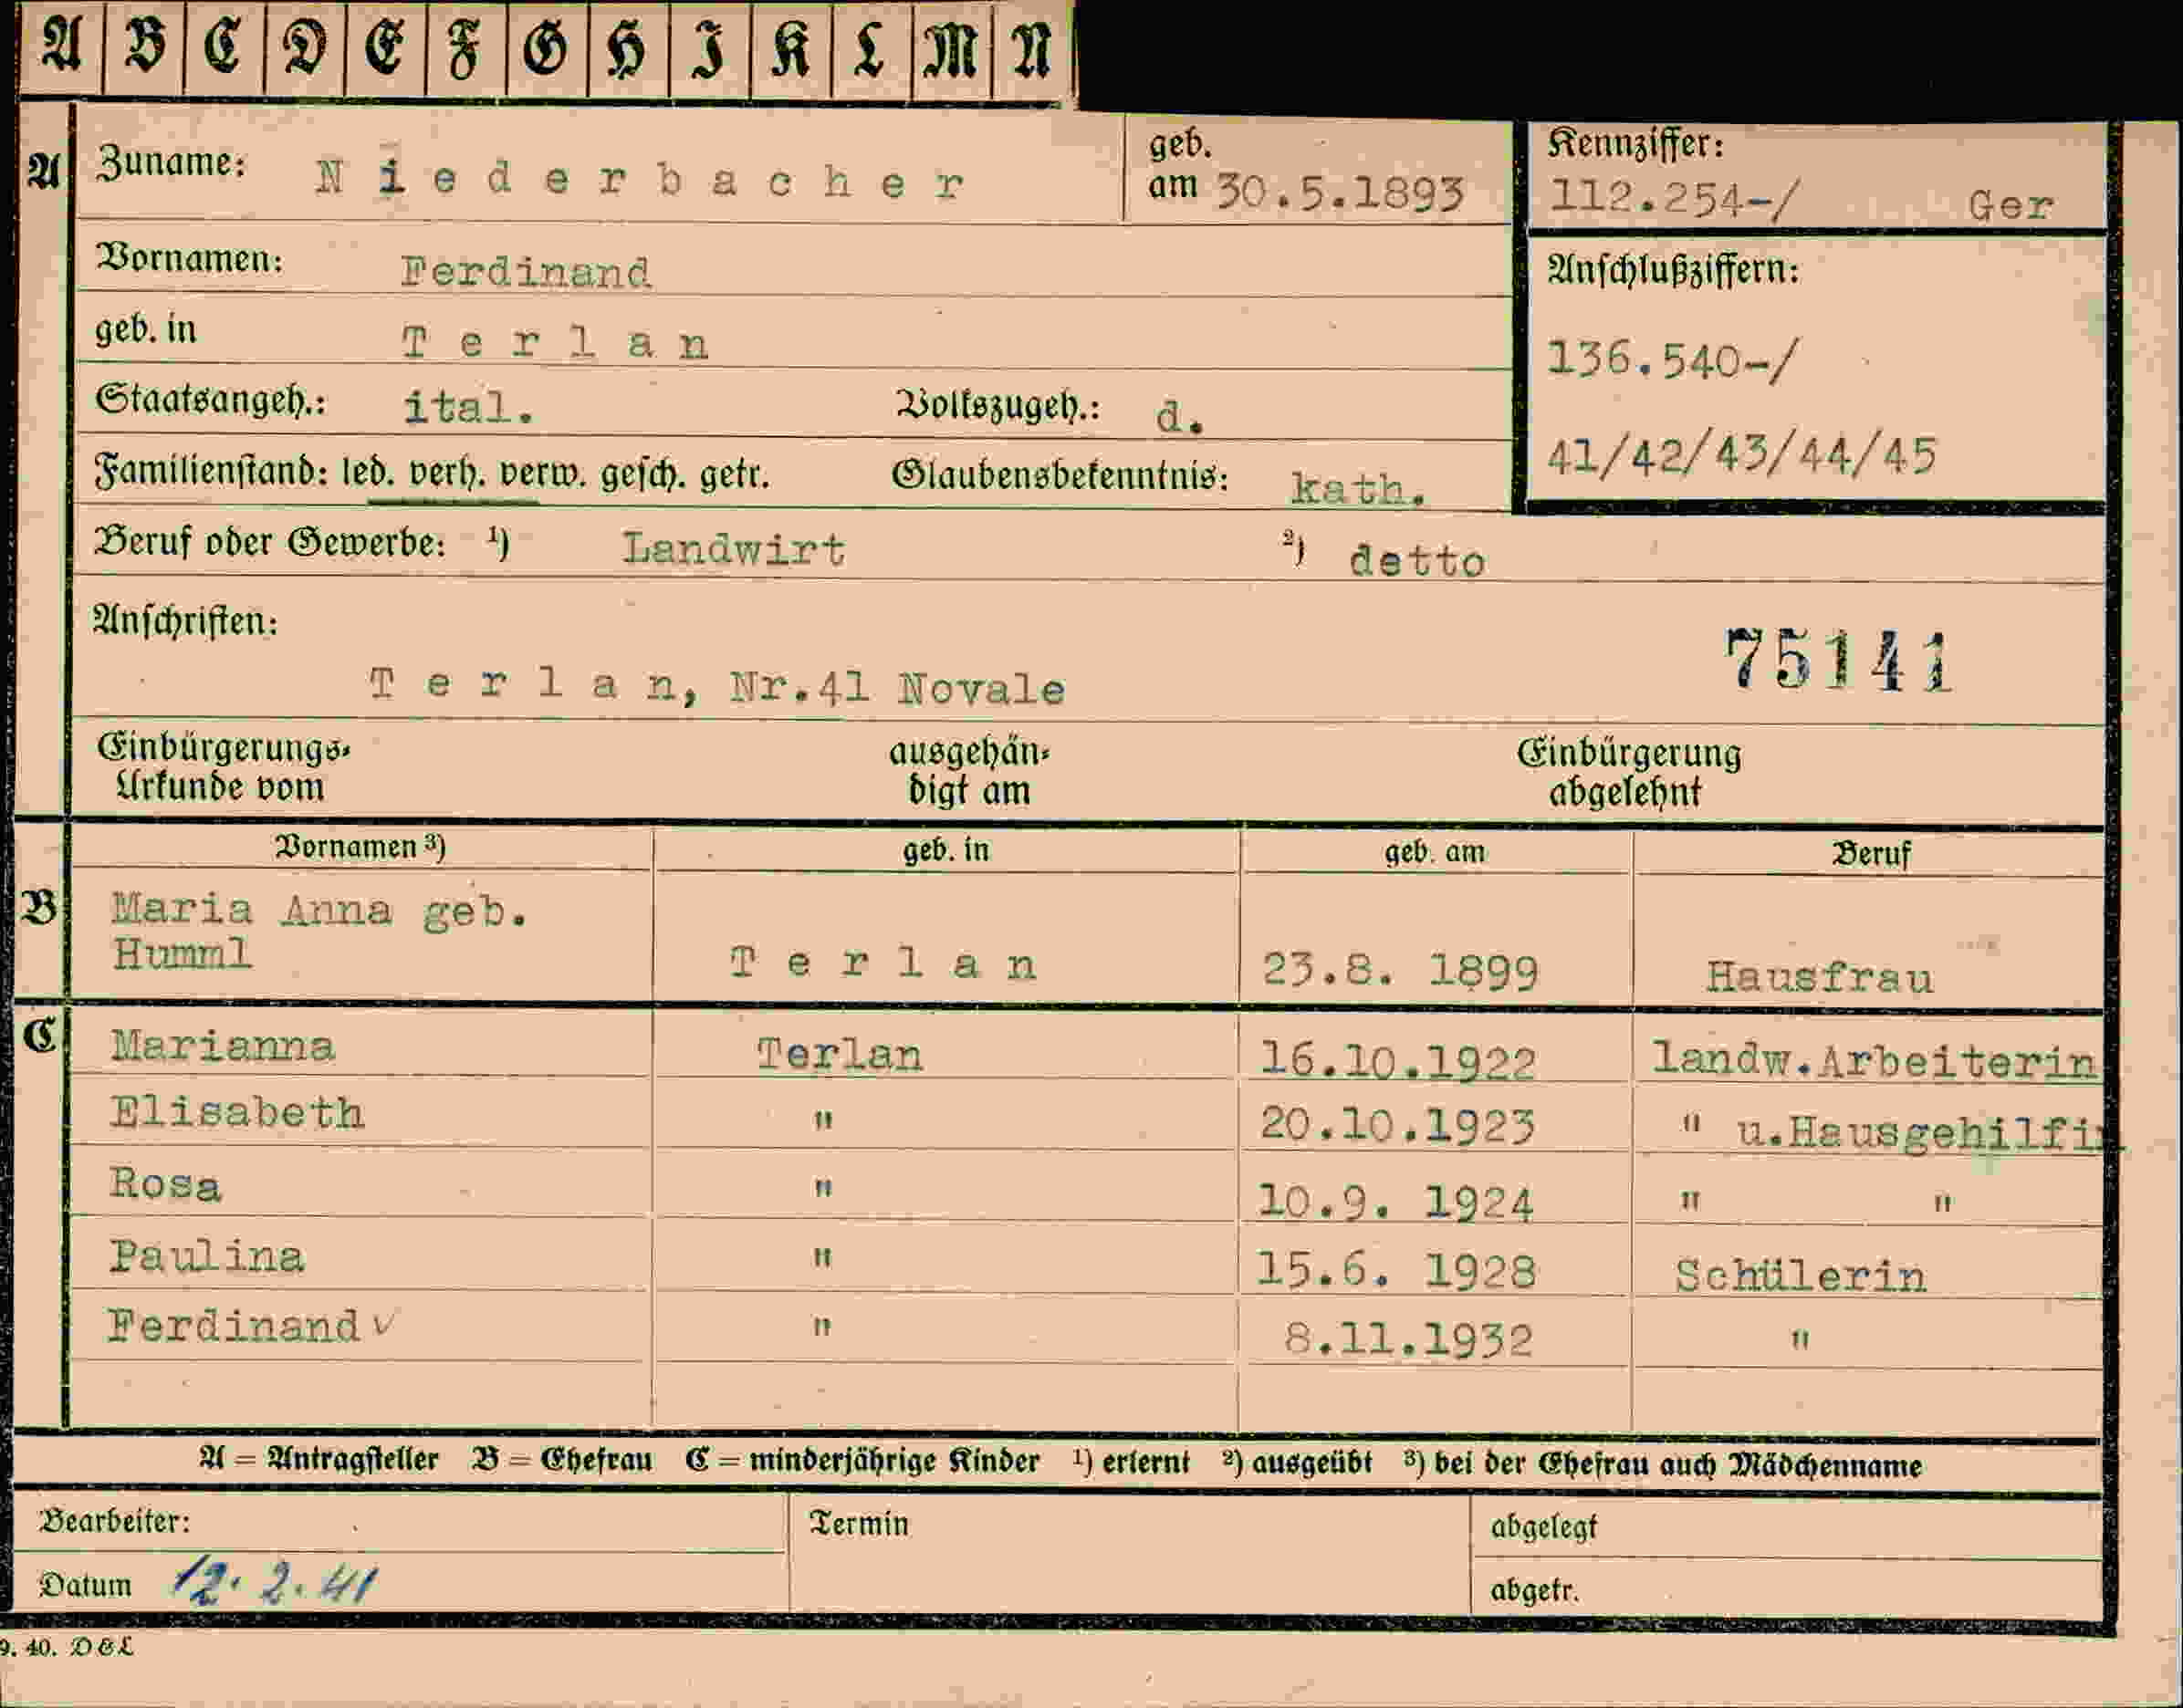 A B C D E F G H I K L M N
A Zuname: Niederbacher geb. am 30.5.1893 Kennziffer: 112.254-/ Ger
Vornamen: Ferdinand Anschlußziffern:
geb. in Terlan 136.540-/
Staatsangeh.: ital. Volkszugeh.: d.
Familienstand: led. verh. verw. gesch. getr. Glaubensbekenntnis: kath. 41/42/43/44/45
Beruf oder Gewerbe: ¹) Landwirt ²) detto
Anschriften: 75141
Terlan, Nr.41 Novale
Einbürgerungs- ausgehän- Einbürgerung
Urkunde vom digt am abgelehnt
Vornamen ³) geb. in geb. am Beruf
B Maria Anna geb.
Humml Terlan 23.8. 1899 Hausfrau
C Marianna Terlan 16.10.1922 landw.Arbeiterin
Elisabeth " 20.10.1923 " u.Hausgehilfin
Rosa " 10.9. 1924 " "
Paulina " 15.6. 1928 Schülerin
Ferdinand v " 8.11.1932 "
A = Antragsteller B = Ehefrau C = minderjährige Kinder ¹) erlernt ²) ausgeübt ³) bei der Ehefrau auch Mädchenname
Bearbeiter: Termin abgelegt
Datum 12.2.41 abgetr.
9. 40. D & L